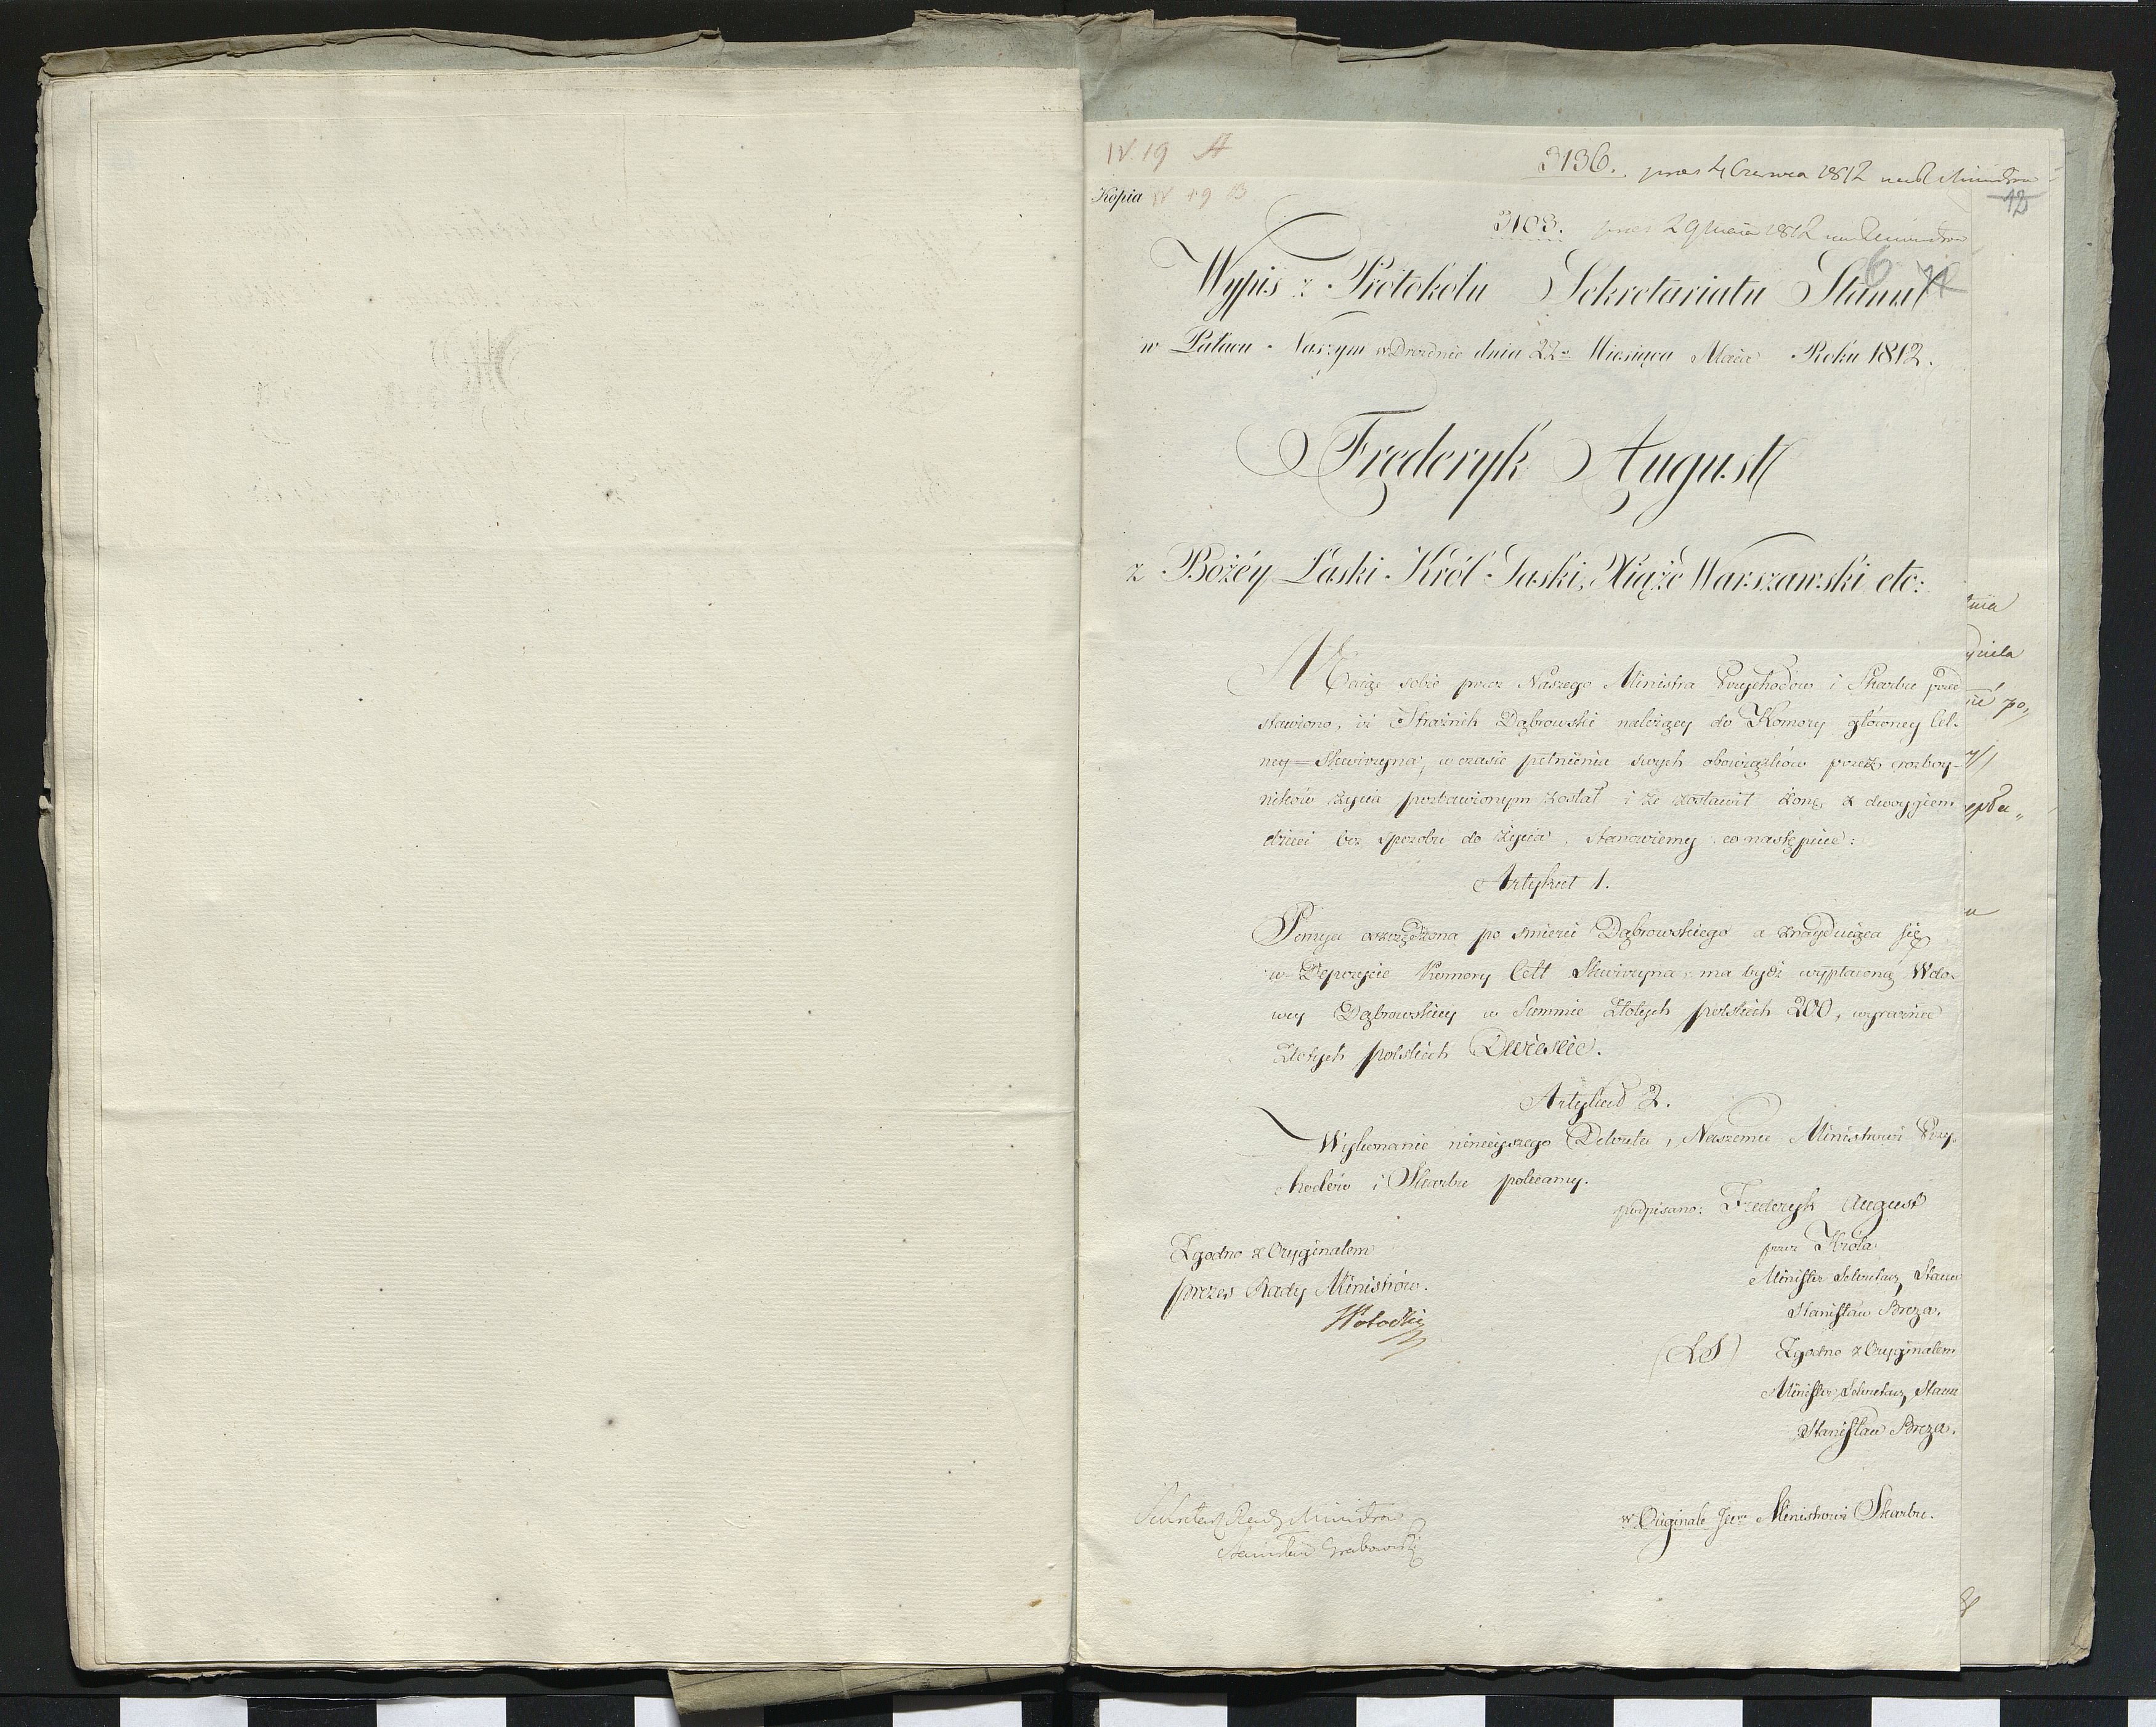 IV. 19 A
3136. praes 4 Czerwca 1812
12
Kopia IV 19 B
3103. praes 29 Maia 1812
6
Wypis z Protokołu Sekretariatu Stanu
w Pałacu Naszym w Dreźnie dnia 22. Miesiąca Maia Roku 1812.
Frederyk August
z Bożéy Łaski Król Saski, Xiąże Warszawski etc:
Maiąc sobie przez Naszego Ministra Przychodów i Skarbu przed
stawiono, iż Strażnik Dąbrowski należący do Komory główney Cel-
ney Skwirzyna, w czasie pełnienia swych obowiązków przez rozboy-
ników życia pozbawionym został i że zostawił żonę z dwoygiem
dzieci bez sposobu do życia, stanowiemy co następuie:
Artykuł 1.
Pensya oszczędzona po śmierci Dąbrowskiego a znayduiąca się
w Depozycie Komory Celł Skwirzyna ma bydź wypłaconą Wdo-
wey Dąbrowskiey w Summie Złotych polskich 200, wyraźnie
Złotych polskich Dwieście.
Artykuł 2.
Wykonanie ninieyszego Dekretu, Naszemu Ministrowi Przy-
chodów i Skarbu polecamy.
podpisano: Frederyk August
przez Króla
Minister Sekretarz Stanu
Stanisław Breza.
Zgodno z Oryginałem
prezes Rady Ministrów.
SPotocki
(LS) Zgodno z Oryginałem
Minister Sekretarz Stanu
Stanisław Breza.
Sekretarz Rady Ministrów
Stanisław Grabowski
w Originale JW Ministrowi Skarbu.